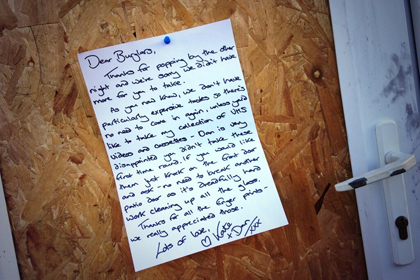 Dear Burglars,
Thanks for popping by the other
night and we're sorry we didn't have
more for you to take.
As you now know, we don't have
particularly expensive tastes so there's
no need to come in again, unless you'd
like to take my collection of VHS
videos and cassettes - Dan is very
disappointed you didn't take these
first time round. If you would like
them just knock on the front door
and ask - no need to break another
patio door as it's dreadfully hard
work cleaning up all the glass.
Thanks for all the finger prints -
we really appreciated those.
Lots of love,
Kate x Dan